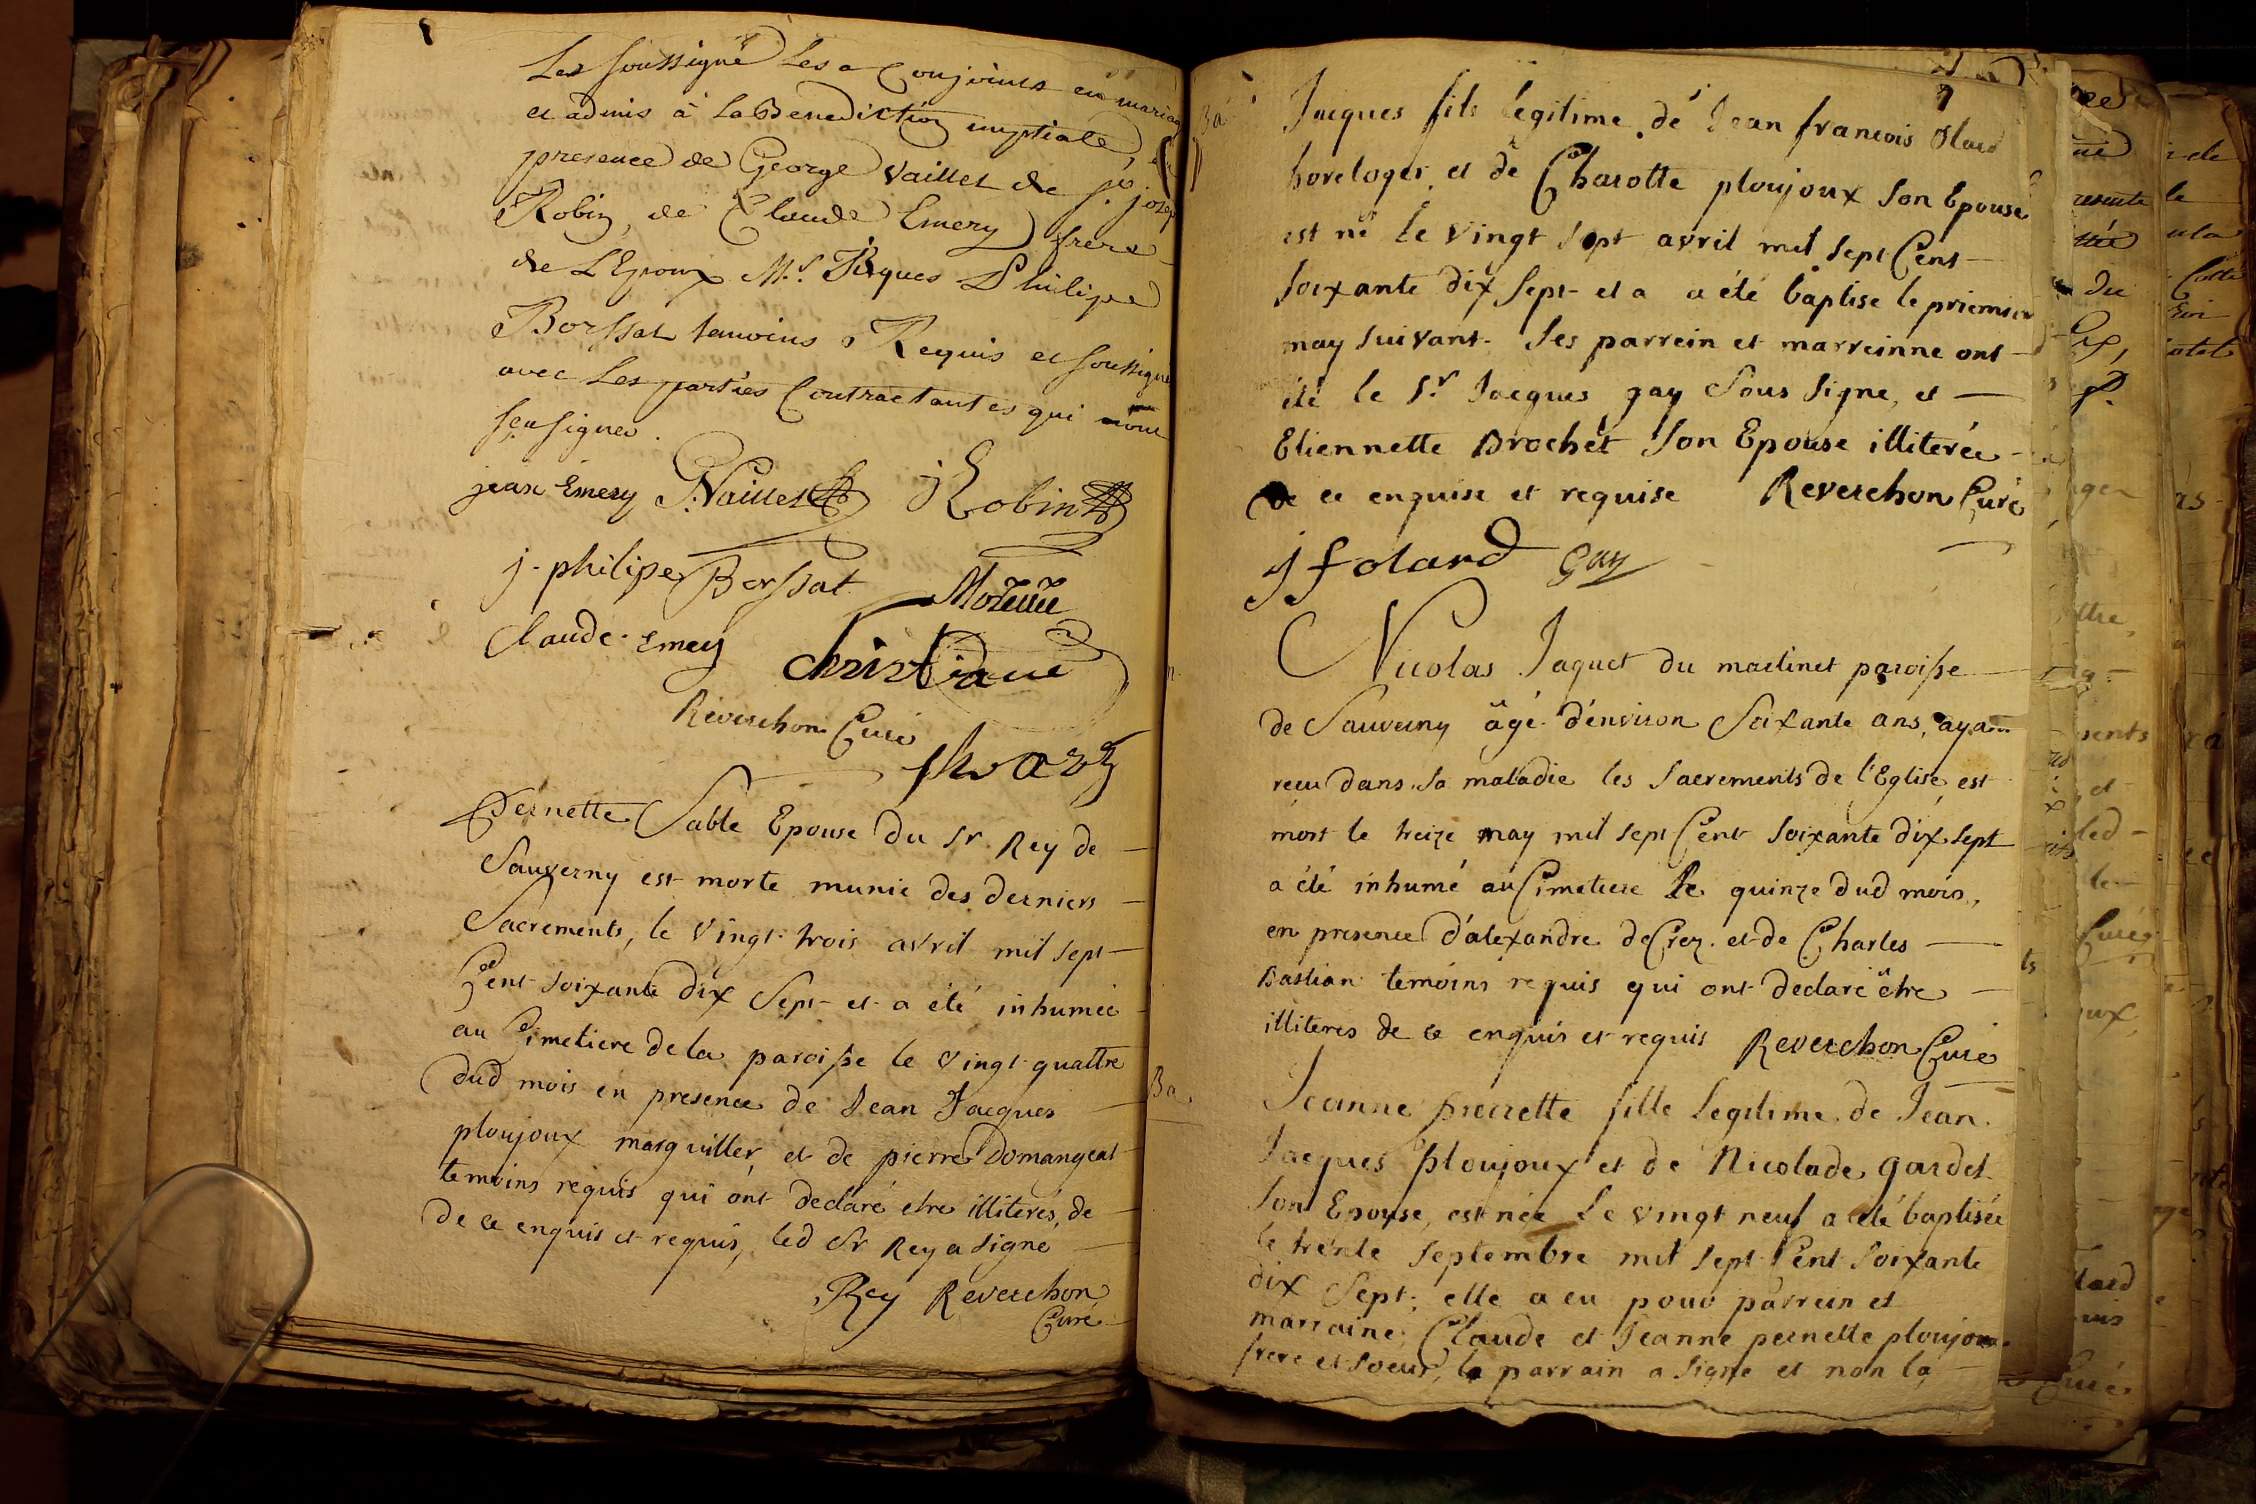 Les soussigné Les a Conjoints en mariag
et admis à la Benediction nuptiale,
presence de George Vaillet de jo. josep
Robin, de Claude Emery frere
de L'Epoux Mr. Jaques Philipe
Borssat temoins Requis et soussigné
avec Les parties Contractantes qui
sçu signer.
jean Emery G. Vaillet J Robin
j. philipe Borssat
Claude Emey Christiane
Reverchon Curé
Pernette Sable Epouse du Sr. Rey de
Sauverny est morte munie des derniers
Sacrements, le vingt trois avril mil sept
Cent soixante dix sept et a été inhumée
au Cimetiere de la paroisse le vingt quattre
dud mois en presence de Jean Jacques
ploujoux marguiller et de pierre Domangeat
temoins requis qui ont declaré etre illiterés, de
de ce enquis et requis, led Sr Rey a signé
Rey Reverchon
Curé
7
Ba
Jacques fils legitime de Jean francois olard
horeloger et de Charotte ploujoux son Epouse
est né le vingt sept avril mil sept Cent
soixante dix sept et a a été baptise le priemier
may suivant. Ses parrein et marreinne ont
été le Sr. Jacques gay Sous signe, et
Etiennette Brochet son Epouse illiterée
de ce enquise et requise Reverchon Curé
jf olard Gay
Nicolas Jaquet du martinet paroisse
de Sauverny âgé d'environ Soixante ans, ayant
recu dans sa maladie les sacrements de l'Eglise, est
mort le treize may mil sept Cent soixante dix sept
a été inhumé au Cimetiere le quinze dud mois,
en presence d'alexandre de Croz et de Charles
Bastian temoins requis qui ont declaré être
illiteres de ce enquis et requis Reverchon Curé
Ba
Jeanne pierrette fille legitime de Jean
Jacques ploujoux et de Nicolade gardet
son Epouse, est née Le vingt neuf a été baptisée
le trente septembre mil sept Cent soixante
dix sept; elle a eu pour parrein et
marraine Claude et Jeanne pernette ploujoux
frere et soeur, le parrain a signé et non la